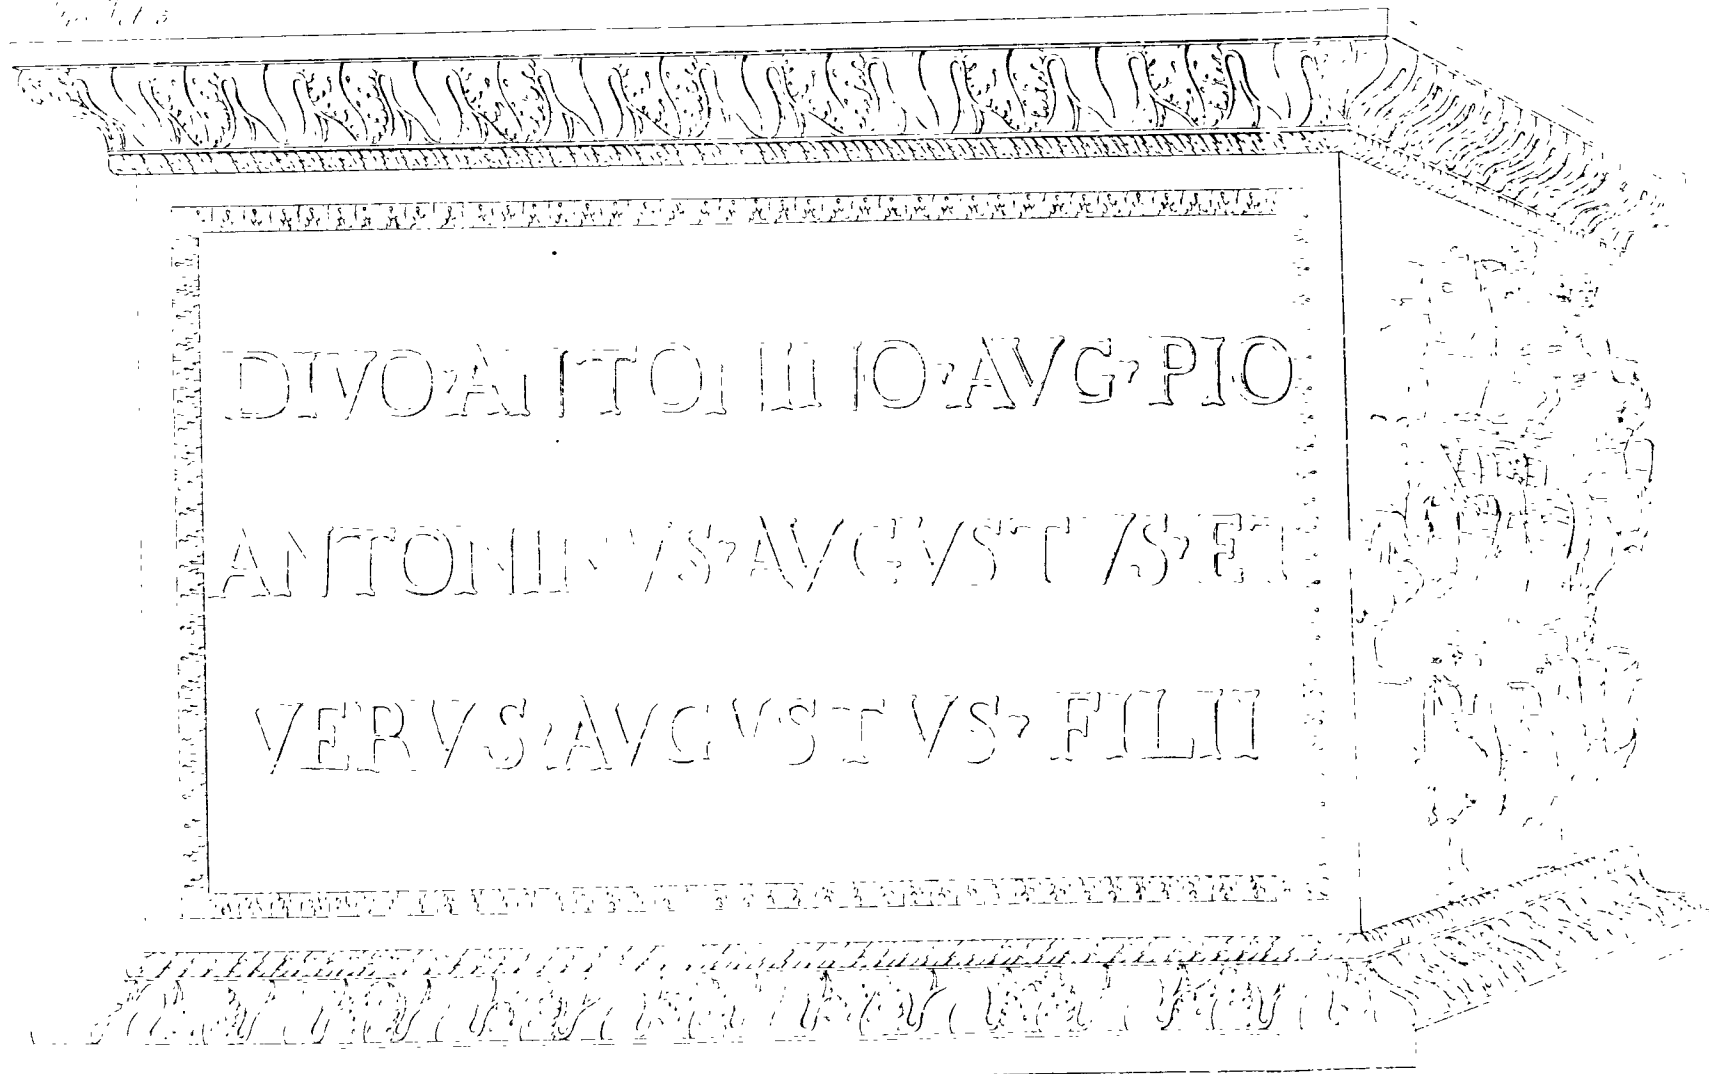 DIVO·ANTONINO·AVG·PIO
ANTONINVS·AVGVSTVS·ET
VERVS·AVGVSTVS·FILII